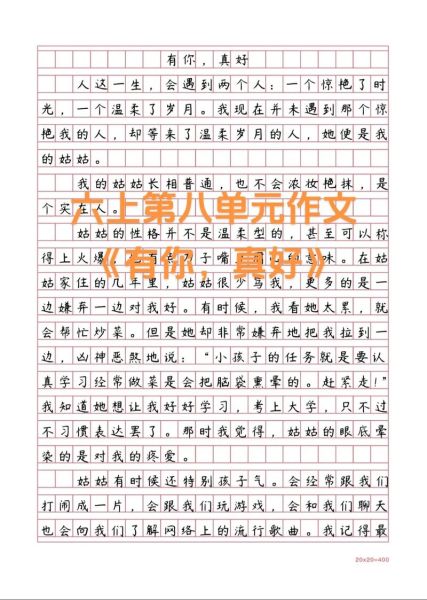 有你，真好
人这一生，会遇到两个人：一个惊艳了时
光，一个温柔了岁月。我现在并未遇到那个惊
艳我的人，却等来了温柔岁月的人，她便是我
的姑姑。
我的姑姑长相普通，也不会浓妆艳抹，是
个实在人。
六上第八单元作文
姑姑的性格并不是温柔型的，甚至可以称
得上火爆，刀子嘴意味。在姑
《有你，真好》
姑家住的几年里，姑姑很少骂我，更多的是一
边嫌弃一边对我好。有时候，我看她太累，就
会帮忙炒菜。但是她却非常嫌弃地把我拉到一
边，凶神恶煞地说：“小孩子的任务就是要认
真学习经常做菜是会把脑袋熏晕的。赶紧走！”
我知道她想让我好好学习，考上大学，只不过
不习惯表达罢了。那时我觉得，姑姑的眼底晕
染的是对我的疼爱。
姑姑有时候还特别孩子气。会经常跟我们
打闹成一片，会跟我们玩游戏，会和我们聊天
也会向我们了解网络上的流行歌曲。我记得最
20x20=400